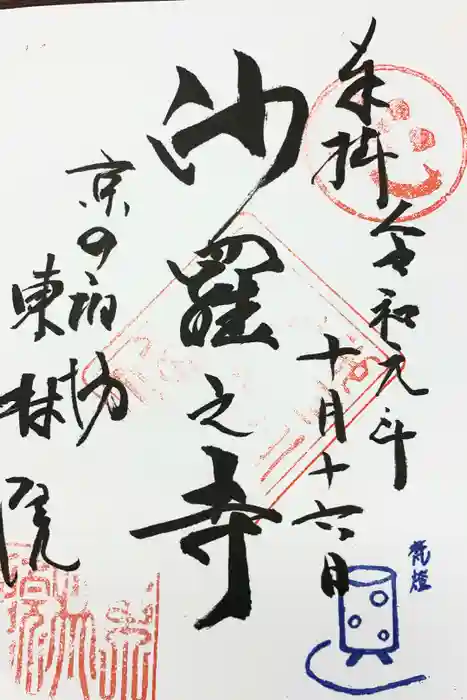 奉拝
令和元年
十月十六日
沙羅之寺
京の宿坊
東林院
梵燈